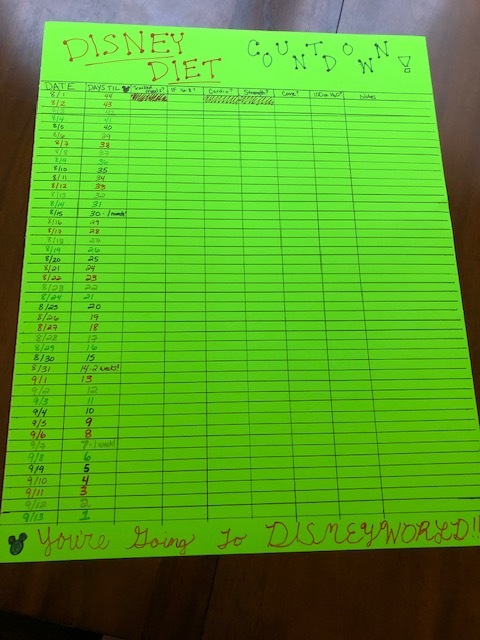 DISNEY DIET
COUNTDOWN!
DATE DAYS TIL IF 16:8? Cardio? Strength? Core? 100oz H2O? Notes
8/1 44
8/2 43
8/3 42
8/4 41
8/5 40
8/6 39
8/7 38
8/8 37
8/9 36
8/10 35
8/11 34
8/12 33
8/13 32
8/14 31
8/15 30 - 1 month!
8/16 29
8/17 28
8/18 27
8/19 26
8/20 25
8/21 24
8/22 23
8/23 22
8/24 21
8/25 20
8/26 19
8/27 18
8/28 17
8/29 16
8/30 15
8/31 14 - 2 weeks!
9/1 13
9/2 12
9/3 11
9/4 10
9/5 9
9/6 8
9/7 7 - 1 week!
9/8 6
9/9 5
9/10 4
9/11 3
9/12 2
9/13 1
You're Going To DISNEYWORLD!!